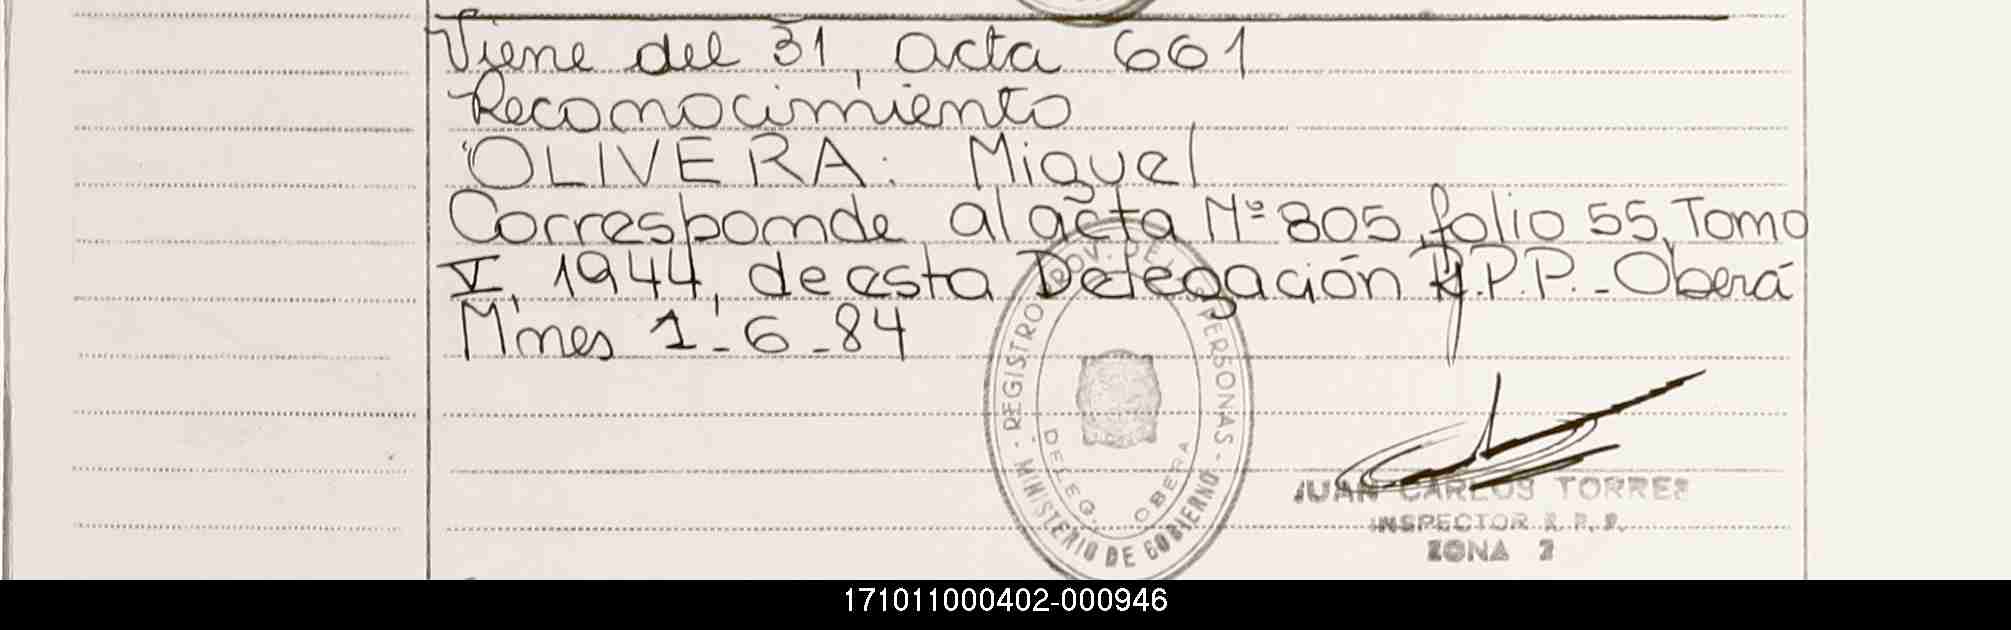 Viene del 31, acta 661
Reconocimiento
OLIVERA: Miguel
Corresponde al acta Nº 805, folio 55, Tomo
V, 1944, de esta Delegación R.P.P. - Oberá
M'nes 1-6-84
- REGISTRO PROV. DE LAS PERSONAS -
MINISTERIO DE GOBIERNO
DELEG. OBERA
JUAN CARLOS TORRES
INSPECTOR R. P. P.
ZONA 2
171011000402-000946